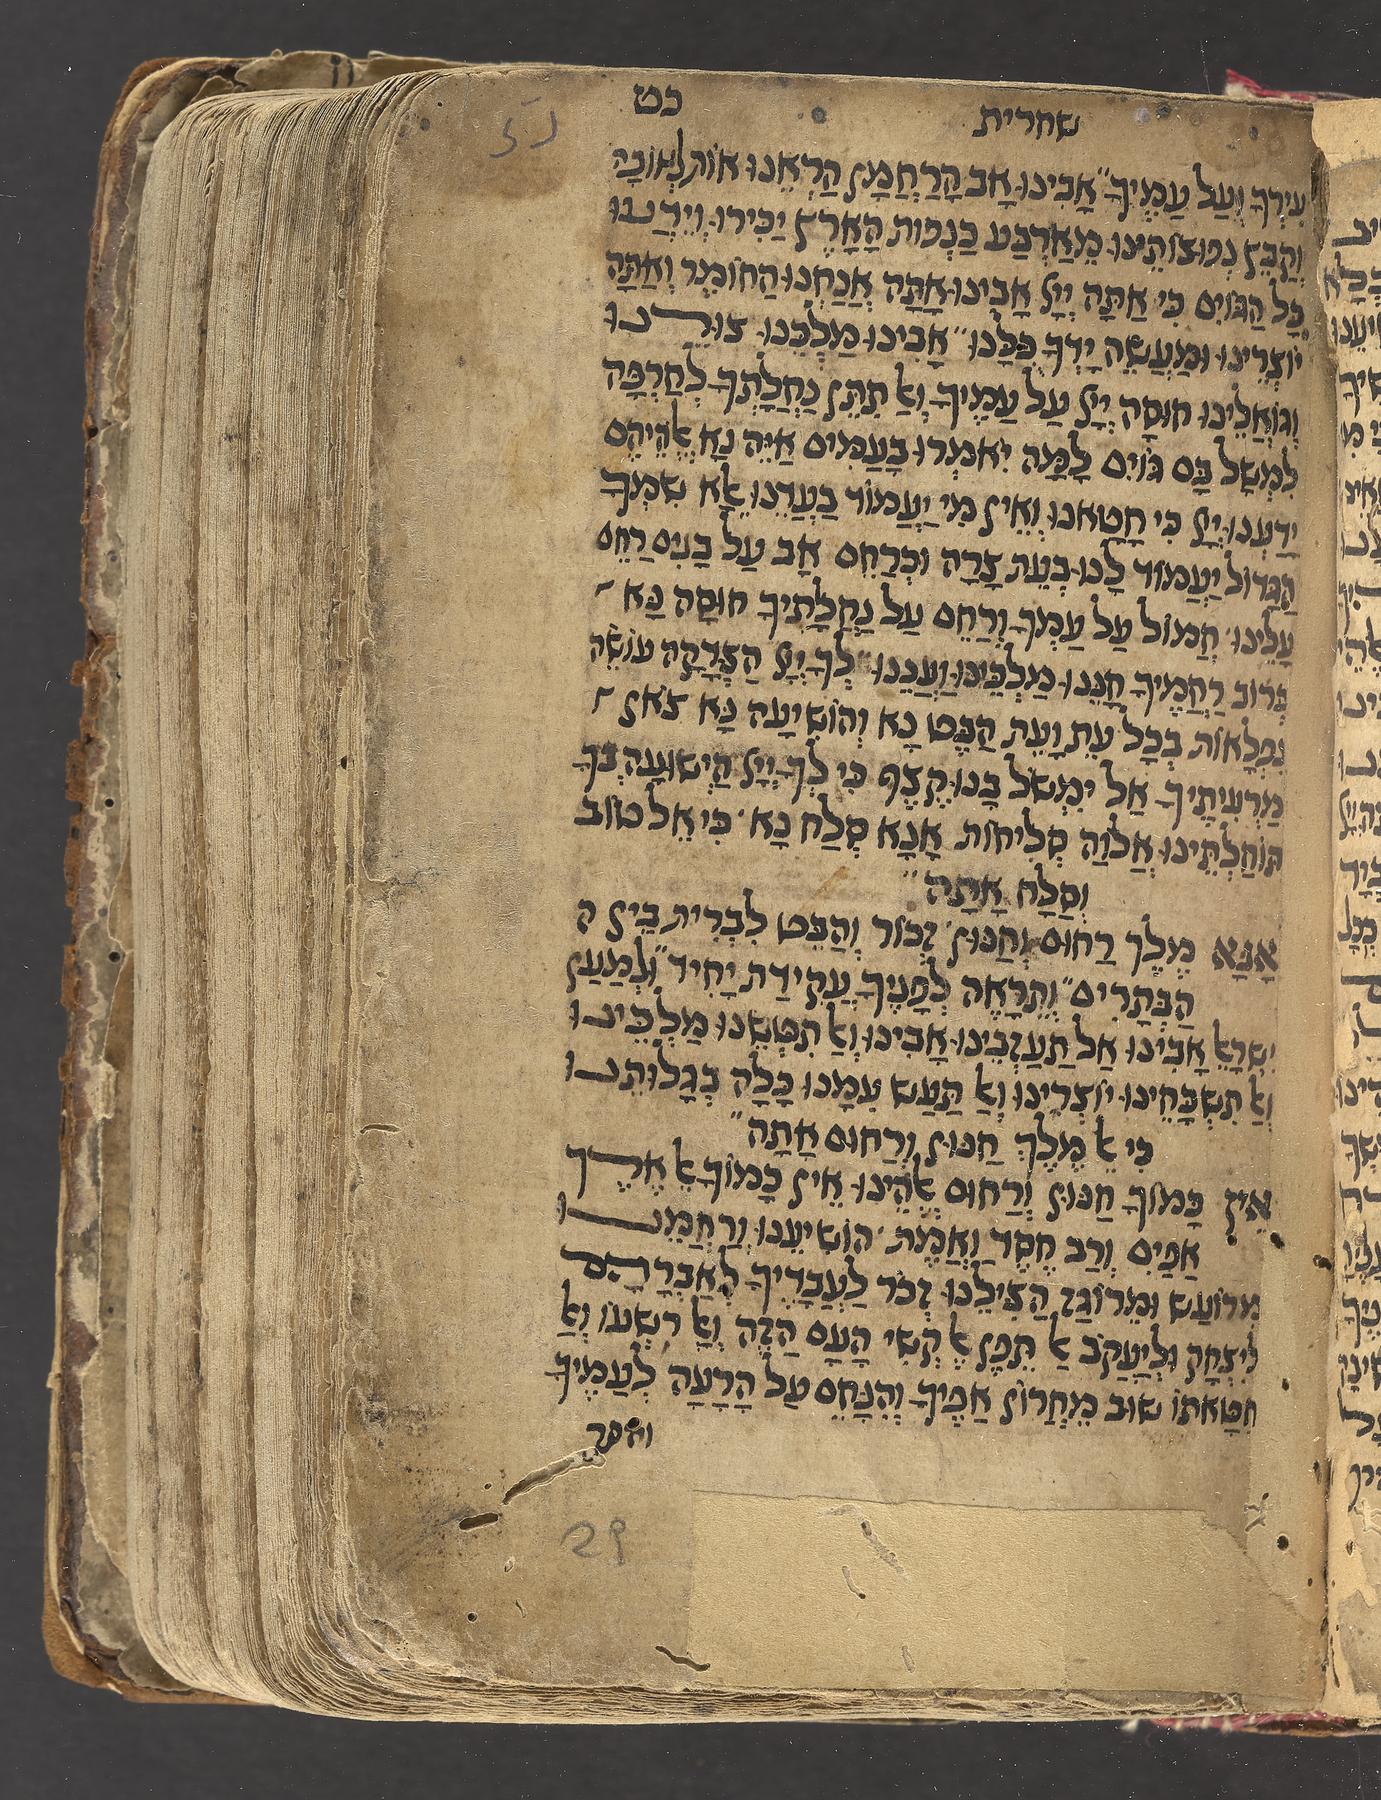 שחרית כט
עִירְךָ וְעַל עַמֶיךָ״ אָבִינוּ אָב הָרַחֲמָן הַרְאֵנוּ אוֹת לְטוֹבָה
וְקַבֵּץ נְפוּצוֹתֵינוּ מֵאַרְבַּע כַּנְפוֹת הָאָרֶץ יַכִּירוּ וְיֵדְעוּ
כָּל הַגּוֹיִם כִּי אַתָּה יְיָ אָבִינוּ אָתָּה אֲנַחְנוּ הַחוֹמֶר וְאַתָּה
יוֹצְרֵינוּ וּמַעֲשֵׂה יָדְךָ כֻּלָּנוּ״ אָבִינוּ מַלְכֵּנוּ צוּרֵנוּ
וְגוֹאֲלֵינוּ חוּסָה יְיָ עַל עַמֶיךָ וְאַל תִּתֵּן נַחֲלָתְךָ לְחֶרְפָּה
לִמְשָׁל בָּם גּוֹיִם לָמָּה יֹאמְרוּ בָּעַמִּים אַיֵּה נָא אֱלֹהֵיהֶם
יָדַעְנוּ יְיָ כִּי חָטָאנוּ וְאֵין מִי יַעֲמוֹד בַּעֲדֵנוּ אֶלָּא שִׁמְךָ
הַגָּדוֹל יַעֲמוֹד לָנוּ בְּעֵת צָרָה וּכְרַחֵם אָב עַל בָּנִים רַחֵם
עָלֵינוּ חֲמוֹל עַל עַמְךָ וְרַחֵם עַל נַחֲלָתֶיךָ חוּסָה נָּא
כְּרוֹב רַחֲמֶיךָ חָנֵּנוּ מַלְכֵּינוּ וַעֲנֵנוּ״ לְךָ יְיָ הַצְּדָקָה עוֹשֵׂה
נִפְלָאוֹת בְּכָל עֵת וָעֵת הַבֶּט נָא וְהוֹשִׁיעָה נָּא צֹאן
מַרְעִיתֶיךָ אַל יִמְשֹׁל בָּנוּ קֶצֶף כִּי לְךָ יְיָ הַיְשׁוּעָה בְּךָ
תוֹחַלְתֵּינוּ אֱלוֹהַּ סְלִיחוֹת אָנָּא סְלַח נָא כִּי אֵל טוֹב
וְסַלָּח אָתָּה״
אָנָּא מֶלֶךְ רַחוּם וְחַנּוּן זְכוֹר וְהַבֵּט לִבְרִית בֵּין ה
הַבְּתָרִים״ וְתֵרָאֶה לְפָנֶיךָ עֲקֵידַת יָחִיד״ וּלְמַעַן
יִשְׂרָאֵל אָבִינוּ אַל תַּעַזְבֵינוּ אָבִינוּ וְאַל תִּטְּשֵׁנוּ מַלְכֵּינוּ
וְאַל תִּשְׁכָּחֵינוּ יוֹצְרֵינוּ וְאַל תַּעַשׂ עִמָּנוּ כָּלָה בְּגָלוּתֵנוּ
כִּי אֵל מֶלֶךְ חַנּוּן וְרַחוּם אָתָּה״
אֵין כָּמוֹךָ חַנּוּן וְרַחוּם אֱלֹהֵינוּ אֵין כָּמוֹךָ אֵל אֶרֶךְ
אַפַּיִם וְרַב חֶסֶד וֶאֱמֶת הוֹשִׁיעֵנוּ וְרַחֲמֵנוּ
מֵרוֹעַשׁ וּמֵרוֹגֶז הַצִּילֵנוּ זְכֹר לַעֲבָדֶיךָ לְאַבְרָהָם
לְיִצְחָק וּלְיַעֲקֹב אַל תֵּפֶן אֶל קְשִׁי הָעָם הַזֶּה וְאֶל רִשְׁעוֹ וְאֶל
חַטָּאתוֹ שׁוּב מֵחֲרוֹן אַפֶּיךָ וְהִנָּחֵם עַל הָרָעָה לְעַמֶּיךָ
והסר
29